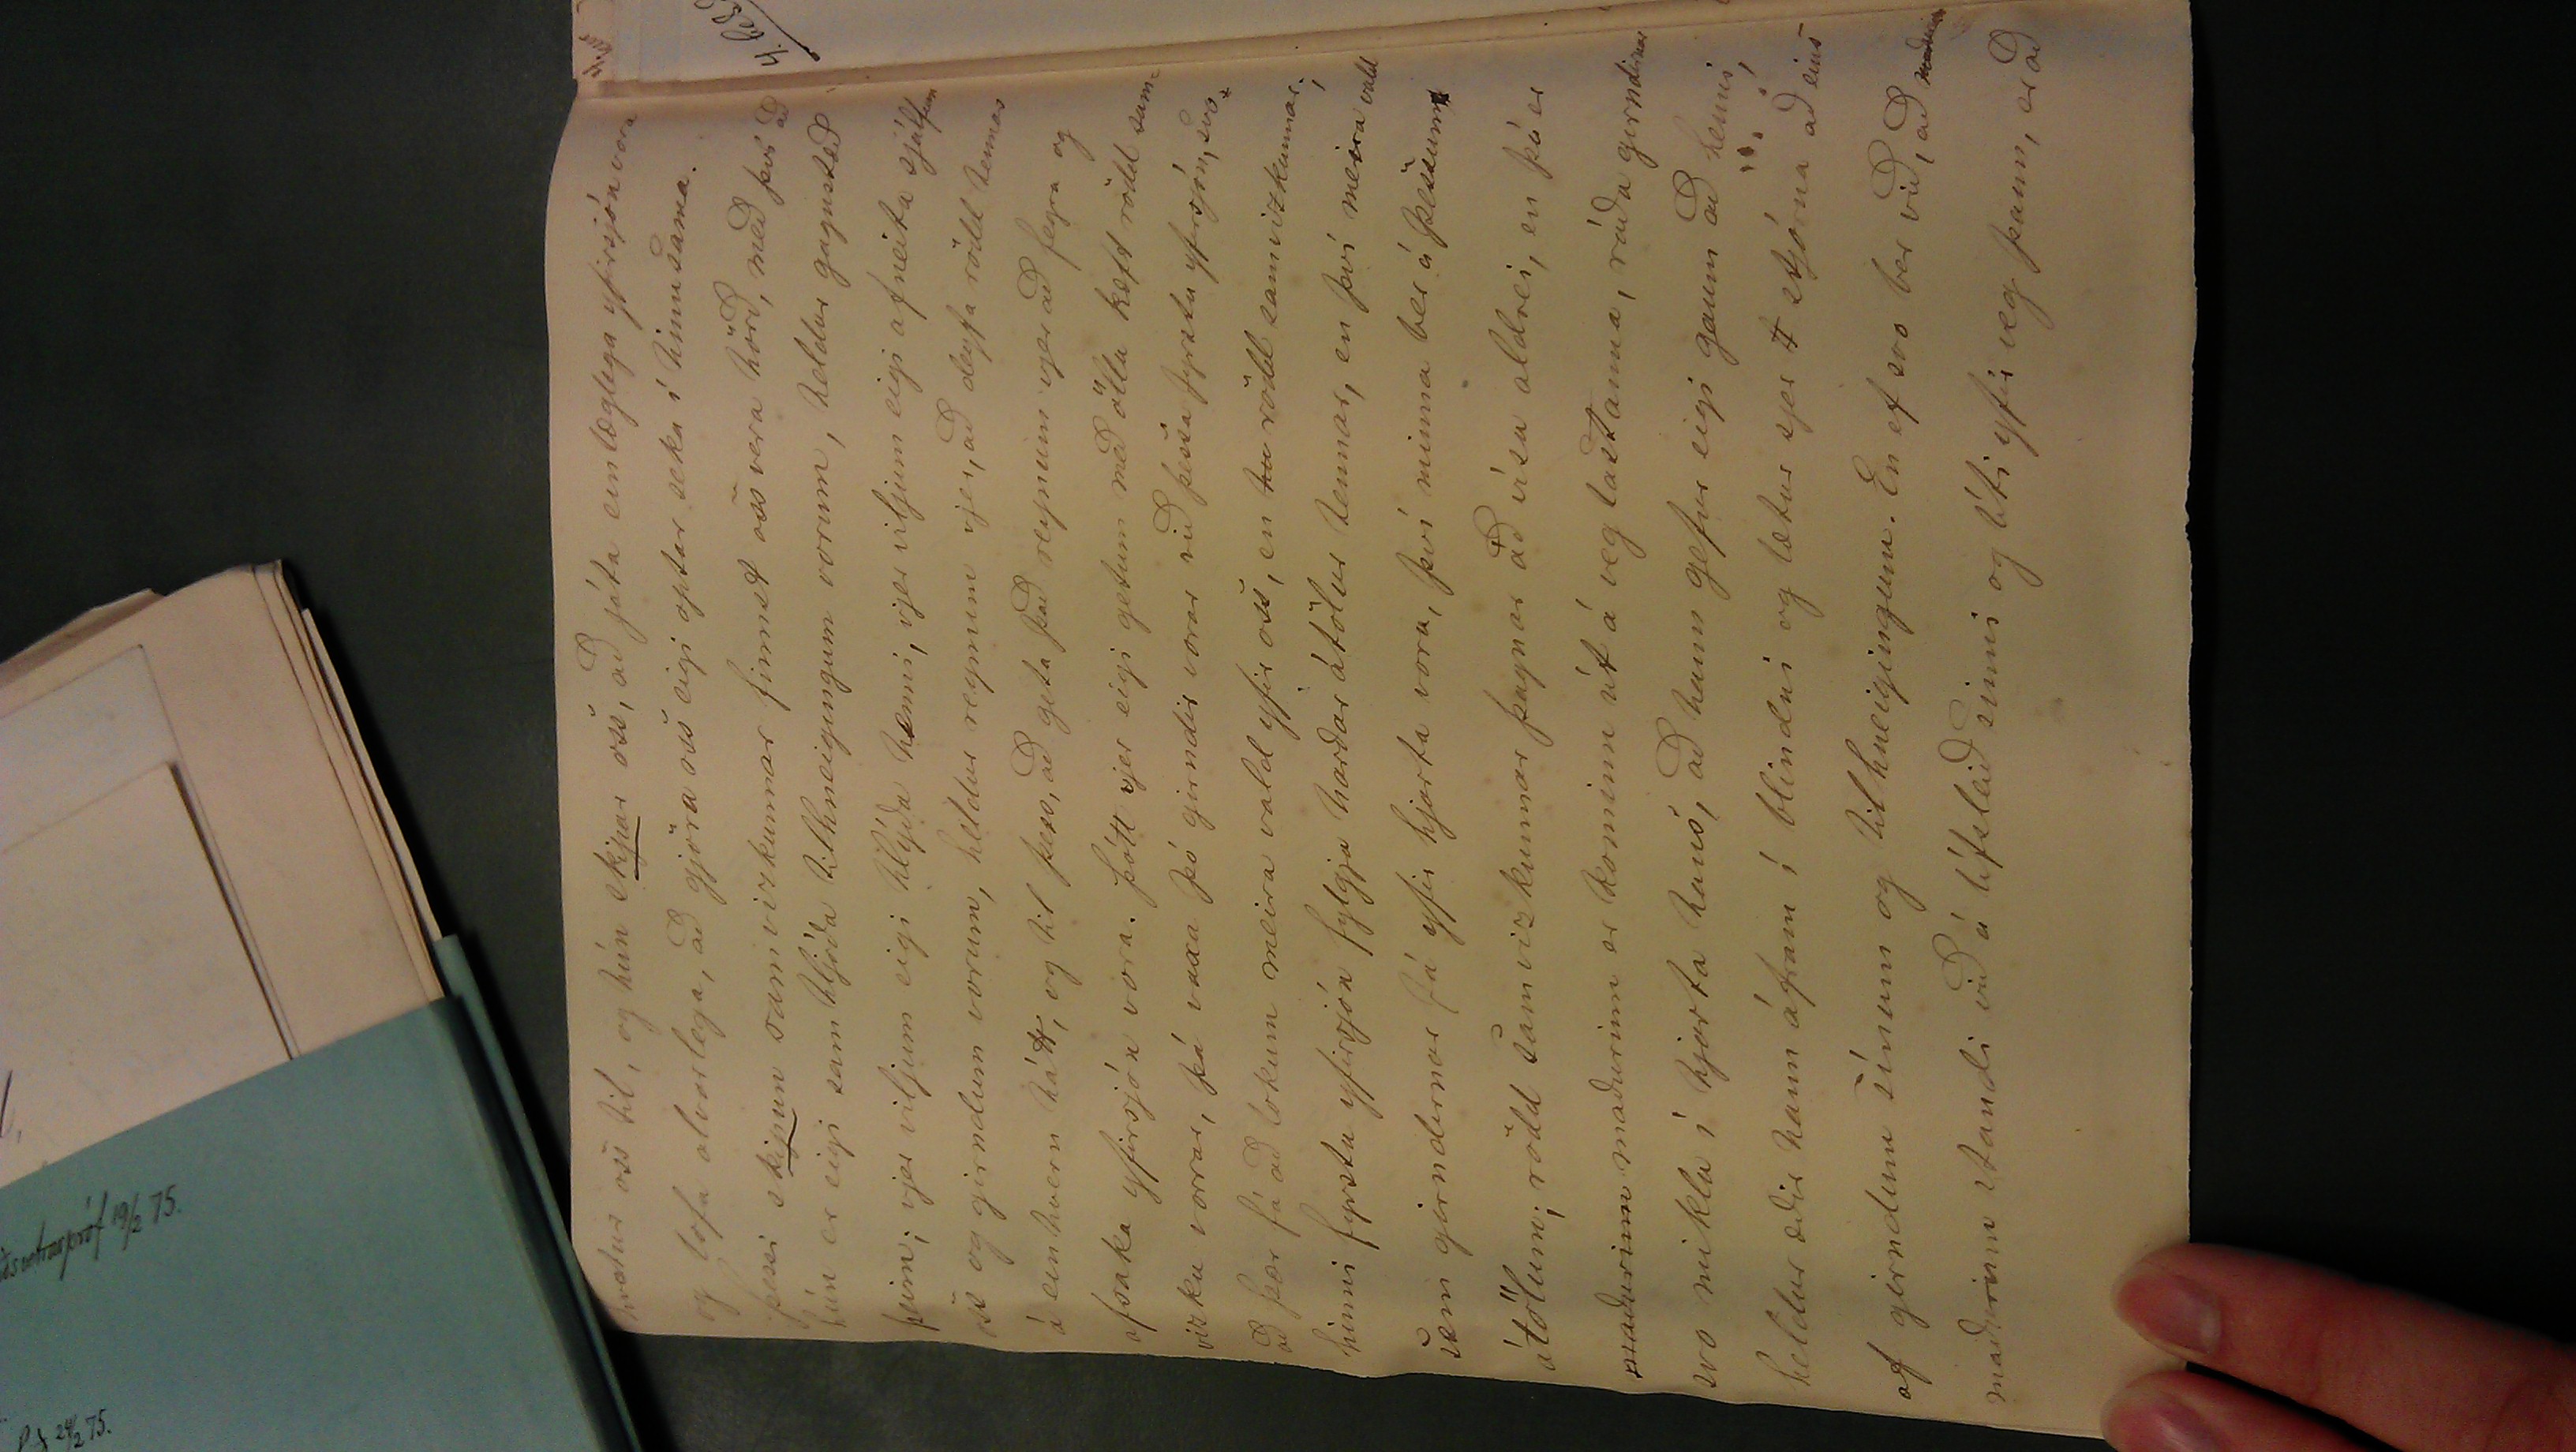 hvetur oss til, og hún skipar oss, að játa einlæglega yfirsjón vora
og lofa alvarlega, að gjöra oss eigi optar seka í hinu sama.
þessi skipun samvizkunnar finnst oss vera hörð, með því að
hún er eigi samhljóða tilhneigingum vorum, heldur gagnstæð
þeim; vjer viljum eigi hlýða henni, vjer viljum eigi afneita sjálfum
oss og girndum vorum, heldur reynum vjer, að deyfa rödd hennar
á einhvern hátt, og til þess, að geta það reynum vjer að fegra og
afsaka yfirsjón vora. Þótt vjer eigi getum með öllu kæft rödd sam-
vizku vorrar, þá vaxa þó girndir vorar við þessa fyrstu yfirsjón, svo
að þær fá að lokum meira vald yfir oss, en rödd samvizkunnar;
hinni fyrstu yfirsjón fylgja harðar átölur hennar, en því meira vald
sem girndirnar fá yfir hjarta voru, því minna ber á þessum
átölum; rödd samvizkunnar þagnar að vísu aldrei, en þá er
maðurinn maðurinn er kominn út á veg lastanna, ráða girndirnar
svo miklu í hjarta hans, að hann gefur eigi gaum að henni,
heldur æðir hann áfram í blindni og lætur sjer stjórna að eins
af girndum sínum og tilhneigingum. En ef svo ber við, að maðurinn
maðurinn standi við á lífsleið sinni og líti yfir veg þann, er að
4.
19/2 75.
24/2 75.